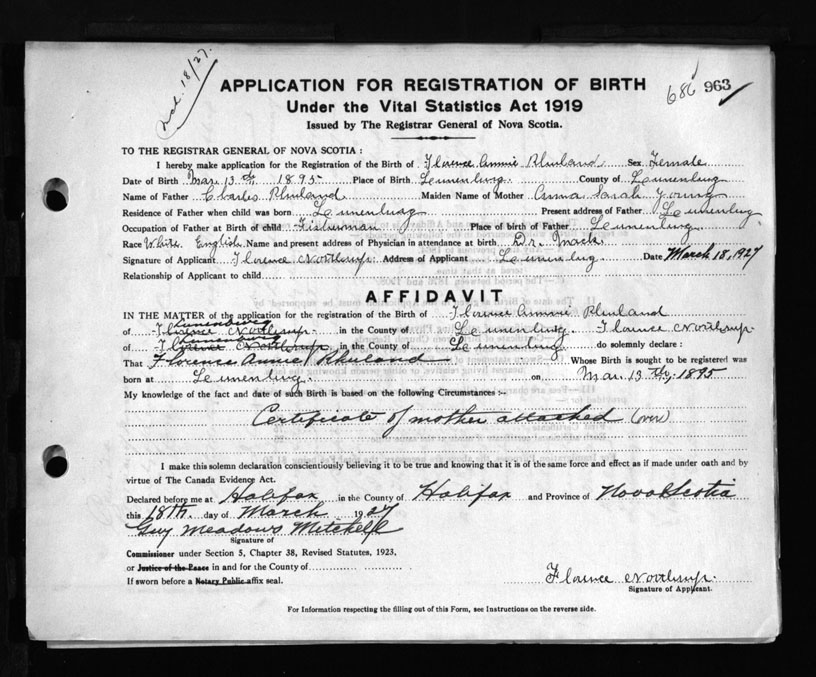 Mch. 18/27.
686 963
APPLICATION FOR REGISTRATION OF BIRTH
Under the Vital Statistics Act 1919
Issued by The Registrar General of Nova Scotia.
TO THE REGISTRAR GENERAL OF NOVA SCOTIA :
I hereby make application for the Registration of the Birth of Florence Annie Rhuland Sex Female
Date of Birth Mar. 13th, 1895 Place of Birth Lunenburg. County of Lunenburg
Name of Father Charles Rhuland Maiden Name of Mother Anna Sarah Young
Residence of Father when child was born Lunenburg Present address of Father Lunenburg
Occupation of Father at Birth of child Fisherman Place of birth of Father Lunenburg.
Race White English Name and present address of Physician in attendance at birth Dr. Mack.
Signature of Applicant Florence Northrup. Address of Applicant Lunenburg Date March 18, 1927
Relationship of Applicant to child
AFFIDAVIT
IN THE MATTER of the application for the registration of the Birth of Florence Annie Rhuland
of Florence Northrup Lunenburg in the County of Lunenburg. Florence Northrup
of Florence Northrup Lunenburg in the County of Lunenburg do solemnly declare :
That Florence Annie Rhuland Whose Birth is sought to be registered was
born at Lunenburg. on Mar. 13th, 1895
My knowledge of the fact and date of such Birth is based on the following Circumstances :-
Certificate of mother attached (over)
I make this solemn declaration conscientiously believing it to be true and knowing that it is of the same force and effect as if made under oath and by
virtue of The Canada Evidence Act.
Declared before me at Halifax in the County of Halifax and Province of Nova Scotia
this 18th day of March 1927
Guy Meadows Mitchell
Signature of
Commissioner under Section 5, Chapter 38, Revised Statutes, 1923,
or Justice of the Peace in and for the County of
If sworn before a Notary Public affix seal.
Florence Northrup.
Signature of Applicant.
For Information respecting the filling out of this Form, see Instructions on the reverse side.